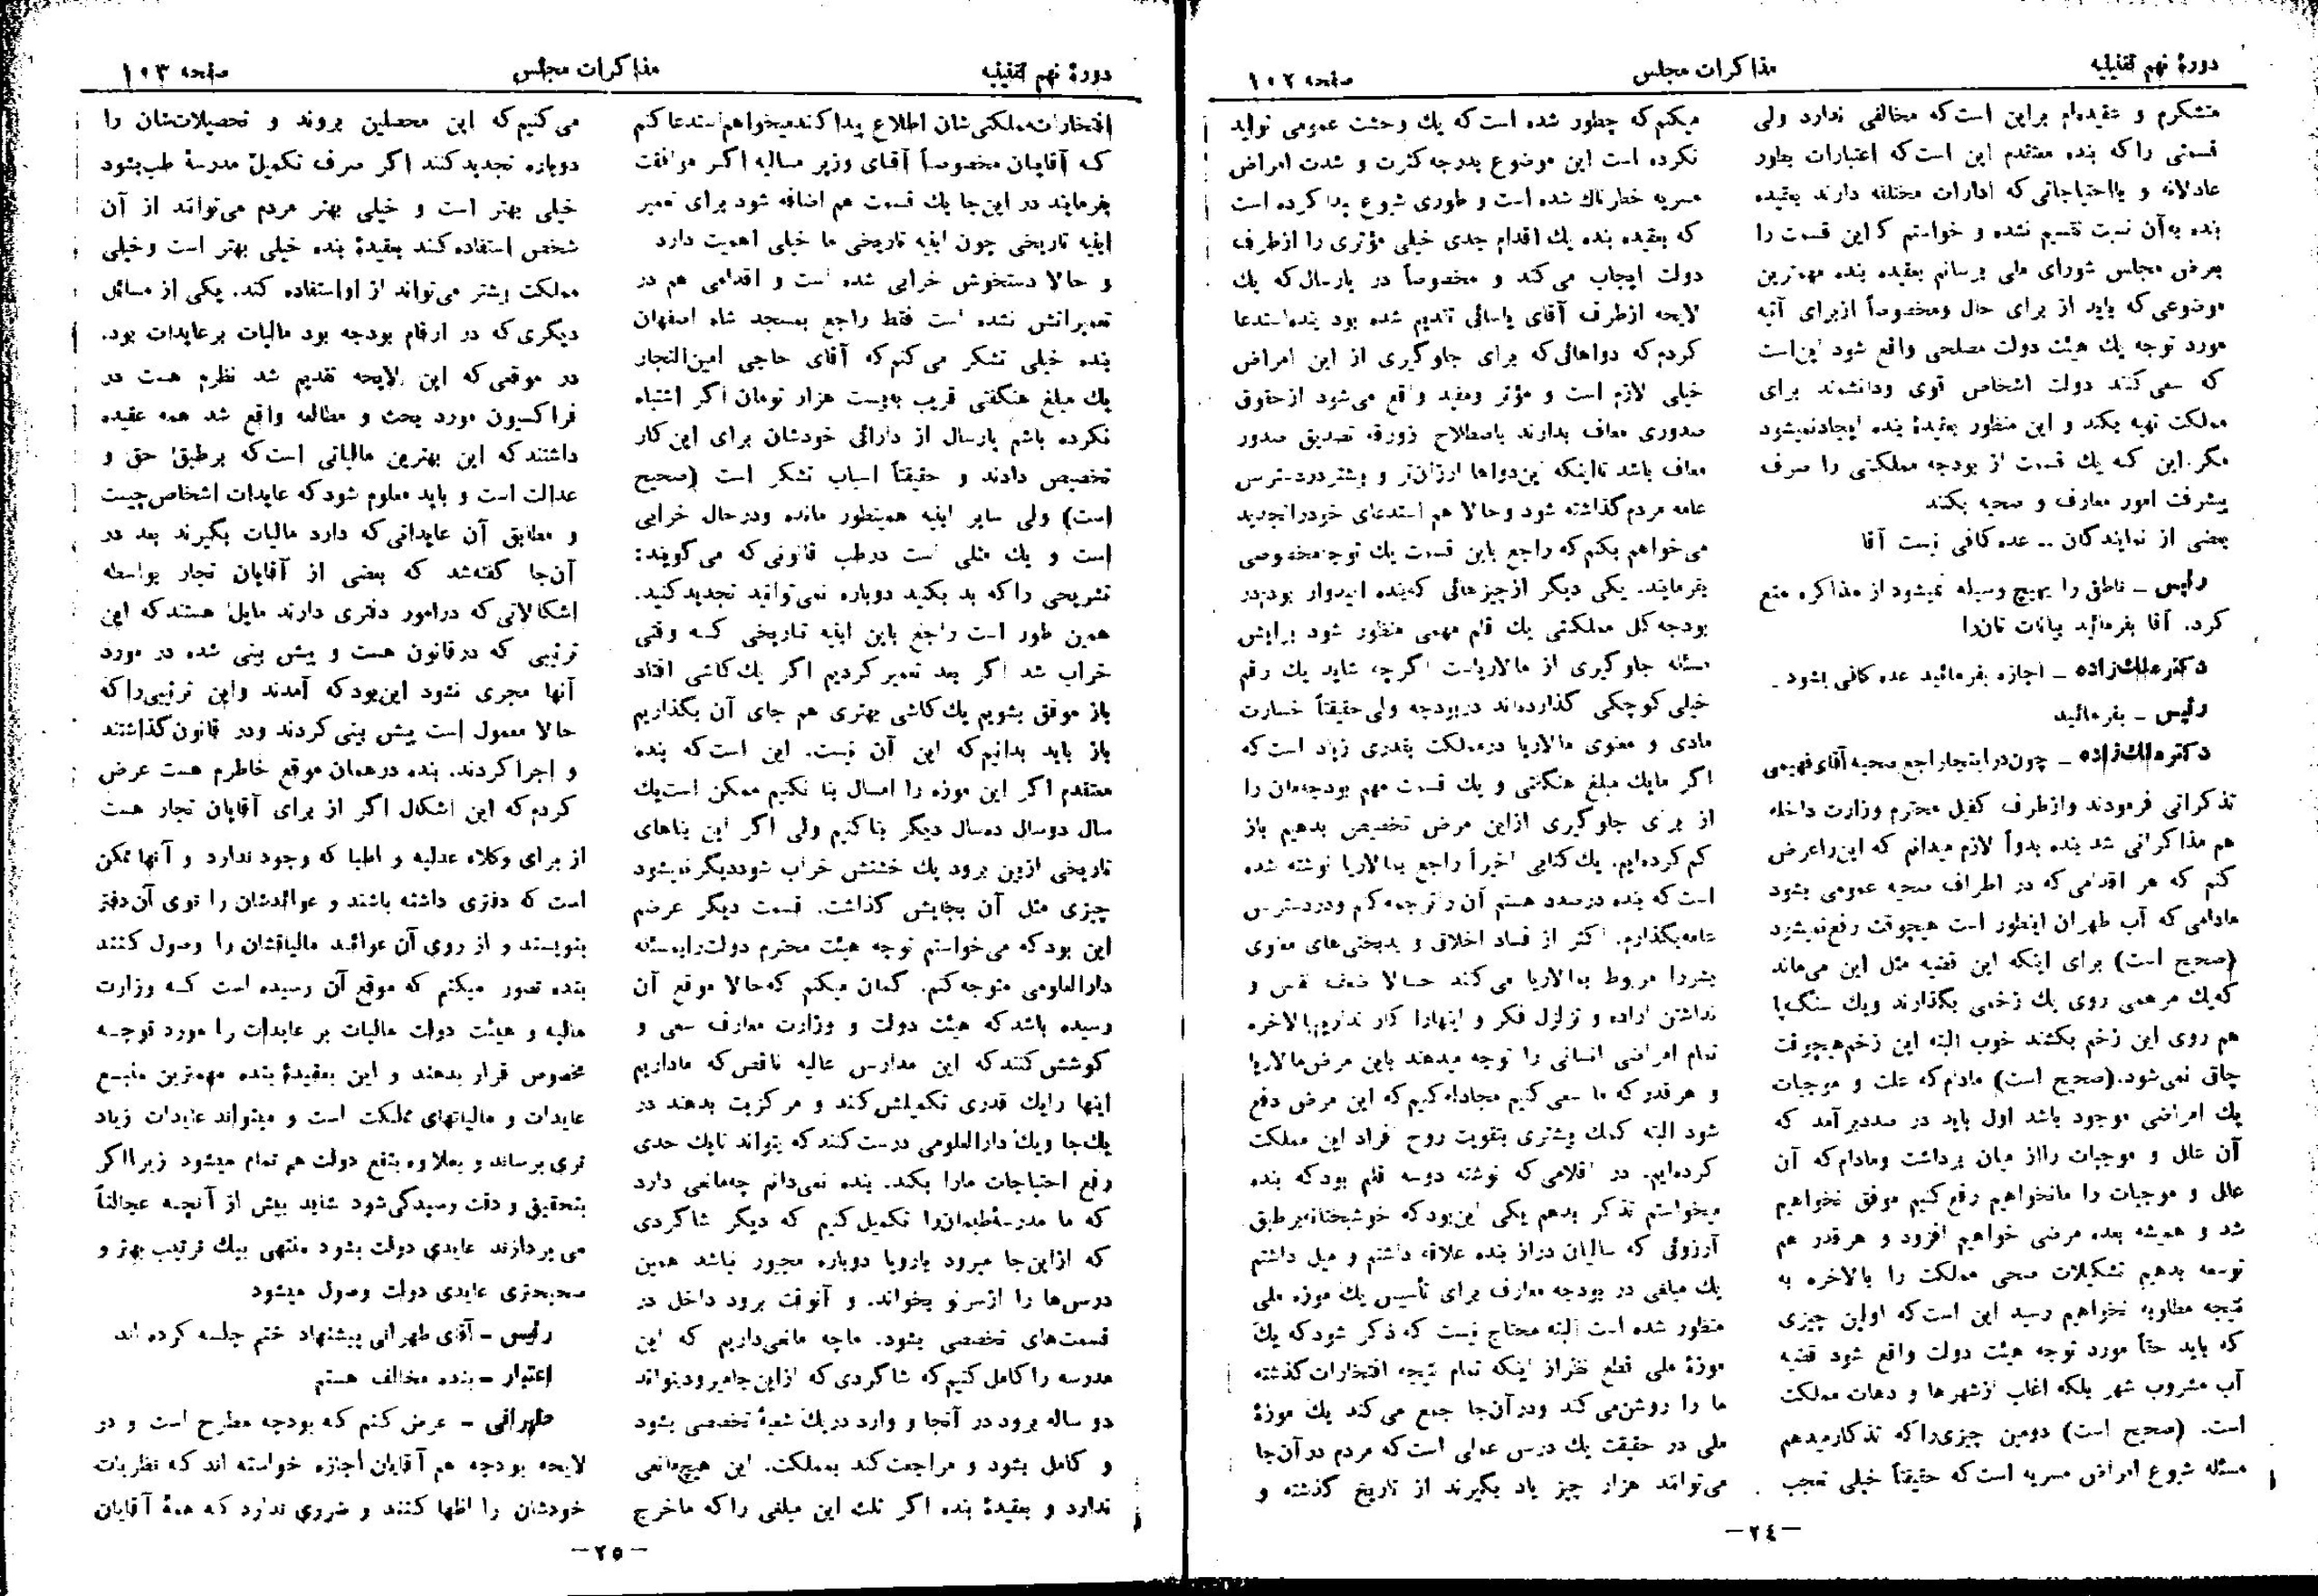 دورهٔ نهم تقنینیه
مذاکرات مجلس
صفحه ۱۰۲
متشکرم و عقیده‌ام براین است که مخالفی ندارد ولی
قسمتی را که بنده معتقدم این است که اعتبارات بطور
عادلانه و بااحتیاجاتی که ادارات مختلفه دارند بعقیده
بنده به‌آن نسبت تقسیم نشده و خواستم که این قسمت را
بعرض مجلس شورای ملی برسانم بعقیده بنده مهمترین
موضوعی که باید از برای حال ومخصوصاً ازبرای آتیه
مورد توجه یک هیئت دولت مصلحی واقع شود این‌است
که سعی کنند دولت اشخاص قوی ودانشمند برای
مملکت تهیه بکند و این منظور بعقیدهٔ بنده ایجادنمیشود
مگر این که یک قسمت از بودجه مملکتی را صرف
پیشرفت امور معارف و صحیه بکنند
بعضی از نمایندگان ـ عده کافی نیست آقا
رئیس ـ ناطق را بهیچ وسیله نمیشود از مذاکره منع
کرد. آقا بفرمائید بیانات تان‌را
دکتر ملک‌زاده ـ اجازه بفرمائید عده کافی بشود ـ
رئیس ـ بفرمائید
دکتر ملک‌زاده ـ چون‌در اینجاراجع بصحیه آقای‌فهیمی
تذکراتی فرمودند وازطرف کفیل محترم وزارت داخله
هم مذاکراتی شد بنده بدواً لازم میدانم که این‌راعرض
کنم که هر اقدامی که در اطراف صحیه عمومی بشود
مادامی که آب طهران اینطور است هیچوقت رفع‌نمیشود
(صحیح است) برای اینکه این قضیه مثل این می‌ماند
که‌یک مرهمی روی یک زخمی بگذارند ویک سنگ‌پا
هم روی این زخم بکشند خوب البته این زخم‌هیچوقت
چاق نمی‌شود.(صحیح است) مادام‌که علت و موجبات
یک امراضی موجود باشد اول باید در صددبرآمد که
آن علل و موجبات رااز میان برداشت ومادام‌که آن
علل و موجبات را مانخواهیم رفع کنیم موفق نخواهیم
شد و همیشه بعده مرضی خواهیم افزود و هرقدر هم
توسعه بدهیم تشکیلات صحی مملکت را بالاخره به
نتیجه مطلوبه نخواهیم رسید این است‌که اولین چیزی
که باید حتماً مورد توجه هیئت دولت واقع شود قضیه
آب مشروب شهر بلکه اغلب ازشهرها و دهات مملکت
است. (صحیح است) دومین چیزی‌راکه تذکارمیدهم
مسئله شیوع امراض مسریه است‌که حقیقتاً خیلی تعجب
میکنم‌که چطور شده است‌که یک وحشت عمومی تولید
نکرده است این موضوع بدرجه‌کثرت و شدت امراض
مسریه خطرناک شده است و طوری شیوع پیدا کرده است
که بعقیده بنده یک اقدام جدی خیلی مؤثری را ازطرف
دولت ایجاب می‌کند و مخصوصاً در پارسال‌که یک
لایحه ازطرف آقای یاسائی تقدیم شده بود بنده‌استدعا
کردم‌که دواهائی‌که برای جلوگیری از این امراض
خیلی لازم است و مؤثر ومفید واقع می‌شود ازحقوق
صدوری معاف بدارند باصطلاح ازورقه تصدیق صدور
معاف باشد تااینکه این‌دواها ارزان‌تر و بیشتردردسترس
عامه مردم‌گذاشته شود وحالا هم استدعای خودراتجدید
می‌خواهم بکنم‌که راجع باین قسمت یک توجه‌مخصوصی
بفرمایند. یکی دیگر ازچیزهائی که‌بنده امیدوار بودم‌در
بودجه‌کل مملکتی یک قلم مهمی منظور شود برایش
مسئله جلوگیری از مالاریاست اگرچه شاید یک رقم
خیلی کوچکی گذارده‌اند دربودجه ولی‌حقیقتاً خسارت
مادی و معنوی مالاریا درمملکت بقدری زیاد است‌که
اگر مایک مبلغ هنگفتی و یک قسمت مهم بودجه‌مان را
از برای جلوگیری ازاین مرض تخصیص بدهیم باز
کم کرده‌ایم. یک‌کتابی اخیراً راجع بمالاریا نوشته شده
است‌که بنده درصدد هستم آن‌راترجمه‌کنم ودردسترس
عامه‌بگذارم. اکثر از فساد اخلاق و بدبختی‌های معنوی
بشررا مربوط بمالاریا می‌کند حالا ضعف نفس و
نداشتن اراده و تزلزل فکر و اینهارا کار نداریم‌بالاخره
تمام امراض انسانی را توجه میدهند باین مرض‌مالاریا
و هرقدرکه ما سعی کنیم مجادله‌کنیم‌که این مرض دفع
شود البته کمک بیشتری بتقویت روح افراد این مملکت
کرده‌ایم. در اقلامی‌که نوشته دوسه قلم بودکه بنده
میخواستم تذکر بدهم یکی این‌بودکه خوشبختانه‌برطبق
آرزوئی که سالیان دراز بنده علاقه داشتم و میل داشتم
یک مبلغی در بودجه معارف برای تأسیس یک موزه ملی
منظور شده است البته محتاج نیست که ذکر شودکه یک
موزهٔ ملی قطع نظراز اینکه تمام نتیجه افتخارات‌گذشته
ما را روشن‌می‌کند ودرآن‌جا جمع می‌کند یک موزهٔ
ملی در حقیقت یک درس عملی است‌که مردم درآن‌جا
می‌توانند هزار چیز یاد بگیرند از تاریخ گذشته و
ـ ۲۴ ـ
دورهٔ نهم تقنینیه
مذاکرات مجلس
صفحه ۱۰۳
افتخارات‌مملکتی‌شان اطلاع پیداکنندمیخواهم‌استدعاکنم
که آقایان مخصوصاً آقای وزیر مالیه اگر موافقت
بفرمایند در این‌جا یک قسمت هم اضافه شود برای تعمیر
ابنیه تاریخی چون ابنیه تاریخی ما خیلی اهمیت دارد
و حالا دستخوش خرابی شده است و اقدامی هم در
تعمیراتش نشده است فقط راجع بمسجد شاه اصفهان
بنده خیلی تشکر می‌کنم‌که آقای حاجی امین‌التجار
یک مبلغ هنگفتی قریب به‌بیست هزار تومان اگر اشتباه
نکرده باشم پارسال از دارائی خودشان برای این‌کار
تخصیص دادند و حقیقتاً اسباب تشکر است (صحیح
است) ولی سایر ابنیه همینطور مانده ودرحال خرابی
است و یک مثلی است درطب قانونی‌که می‌گویند:
تشریحی راکه بد بکنید دوباره نمی‌توانید تجدیدکنید.
همین طور است راجع باین ابنیه تاریخی که وقتی
خراب شد اگر بعد تعمیرکردیم اگر یک‌کاشی افتاد
باز موفق بشویم یک‌کاشی بهتری هم جای آن بگذاریم
باز باید بدانیم‌که این آن نیست. این است‌که بنده
معتقدم اگر این موزه را امسال بنا نکنیم ممکن است‌یک
سال دوسال ده‌سال دیگر بناکنیم ولی اگر این بناهای
تاریخی ازبین برود یک خشتش خراب شوددیگرنمیشود
چیزی مثل آن بجایش گذاشت. قسمت دیگر عرضم
این بودکه می‌خواستم توجه هیئت محترم دولت‌رابمسئله
دارالعلومی متوجه‌کنم. گمان میکنم که‌حالا موقع آن
رسیده باشدکه هیئت دولت و وزارت معارف سعی و
کوشش‌کنندکه این مدارس عالیه ناقص‌که ماداریم
اینها رایک قدری تکمیلش‌کند و مرکزیت بدهند در
یک‌جا ویک دارالعلومی درست‌کنندکه بتواند تایک حدی
رفع احتیاجات مارا بکند. بنده نمی‌دانم چه‌مانعی دارد
که ما مدرسهٔ‌طبمان‌را تکمیل‌کنیم که دیگر شاگردی
که ازاین‌جا میرود باروپا دوباره مجبور نباشد همین
درس‌ها را ازسرنو بخواند. و آنوقت برود داخل در
قسمت‌های تخصصی بشود. ماچه مانعی‌داریم که این
مدرسه راکامل‌کنیم‌که شاگردی‌که ازاین‌جامیرودبتواند
دو ساله برود در آنجا و وارد دریک شعبهٔ تخصصی بشود
و کامل بشود و مراجعت‌کند بمملکت. این هیچ‌مانعی
ندارد و بعقیدهٔ بنده اگر ثلث این مبلغی راکه ماخرج
می‌کنیم‌که این محصلین بروند و تحصیلات‌شان را
دوباره تجدیدکنند اگر صرف تکمیل مدرسهٔ طب‌بشود
خیلی بهتر است و خیلی بهتر مردم می‌تواند از آن
شخص استفاده‌کنند بعقیدهٔ بنده خیلی بهتر است وخیلی
مملکت بیشتر می‌تواند از اواستفاده کند. یکی از مسائل
دیگری‌که در ارقام بودجه بود مالیات برعایدات بود.
در موقعی‌که این لایحه تقدیم شد نظرم هست در
فراکسیون مورد بحث و مطالعه واقع شد همه عقیده
داشتندکه این بهترین مالیاتی است‌که برطبق حق و
عدالت است و باید معلوم شودکه عایدات اشخاص‌چیست
و مطابق آن عایداتی‌که دارد مالیات بگیرند بعد در
آن‌جا گفته‌شد که بعضی از آقایان تجار بواسطه
اشکالاتی‌که درامور دفتری دارند مایل هستندکه این
ترتیبی که درقانون هست و پیش بینی شده در مورد
آنها مجری نشود این‌بودکه آمدند واین ترتیبی‌راکه
حالا معمول است پیش بینی‌کردند ودر قانون‌گذاشتند
و اجراکردند. بنده درهمان موقع خاطرم هست عرض
کردم‌که این اشکال اگر از برای آقایان تجار هست
از برای وکلاء عدلیه و اطبا که وجود ندارد و آنها ممکن
است که دفتری داشته باشند و عوائدشان را توی آن‌دفتر
بنویسند و از روی آن عوائد مالیاتشان را وصول کنند
بنده تصور میکنم که موقع آن رسیده است که وزارت
مالیه و هیئت دولت مالیات بر عایدات را مورد توجه
مخصوص قرار بدهند و این بعقیدهٔ بنده مهمترین منبع
عایدات و مالیاتهای مملکت است و میتواند عایدات زیاد
تری برساند و بعلاوه بنفع دولت هم تمام میشود زیرااگر
بتحقیق و دقت رسیدگی‌شود شاید بیش از آنچه عجالتاً
می‌پردازند عایدی دولت بشود منتهی بیک ترتیب بهتر و
صحیحتری عایدی دولت وصول میشود
رئیس ـ آقای طهرانی پیشنهاد ختم جلسه کرده اند
اعتبار ـ بنده مخالف هستم
طهرانی ـ عرض کنم که بودجه مطرح است و در
لایحه بودجه هم آقایان اجازه خواسته اند که نظریات
خودشان را اظها کنند و ضروی ندارد که همهٔ آقایان
ـ ۲۵ ـ